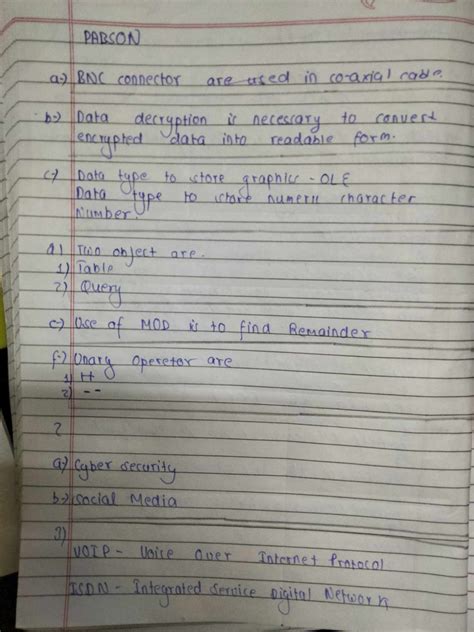 PABSON
a→) BNC connector are used in co-axial cable.
b→) Data decryption is necessary to convert
encrypted data into readable form.
c→) Data type to store graphics - OLE
Data type to store numeric character
Number.
d) Two object are.
1) Table
2) Query
e→) Use of MOD is to find Remainder
f→) Unary operator are
1) ++
2) --
2
a→) Cyber security
b→) Social Media
3)
VOIP - Voice Over Internet Protocol
ISDN - Integrated Service Digital Network